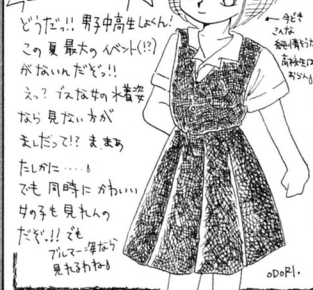 どうだっ!! 男子中高生しょくん!
この夏最大のイベント(!?)
がないんだぞっ!!
えっ? ブスな女の水着姿
なら見ない方が
ましだって!? ま、まぁ
たしかに‥‥。
でも同時にかわいい
女の子も見れんの
だぞ!! でも
ブルマー姿なら
見れるわね。
← 今どき
こんな
純情そうな
高校生は
おらん。
ODORI.